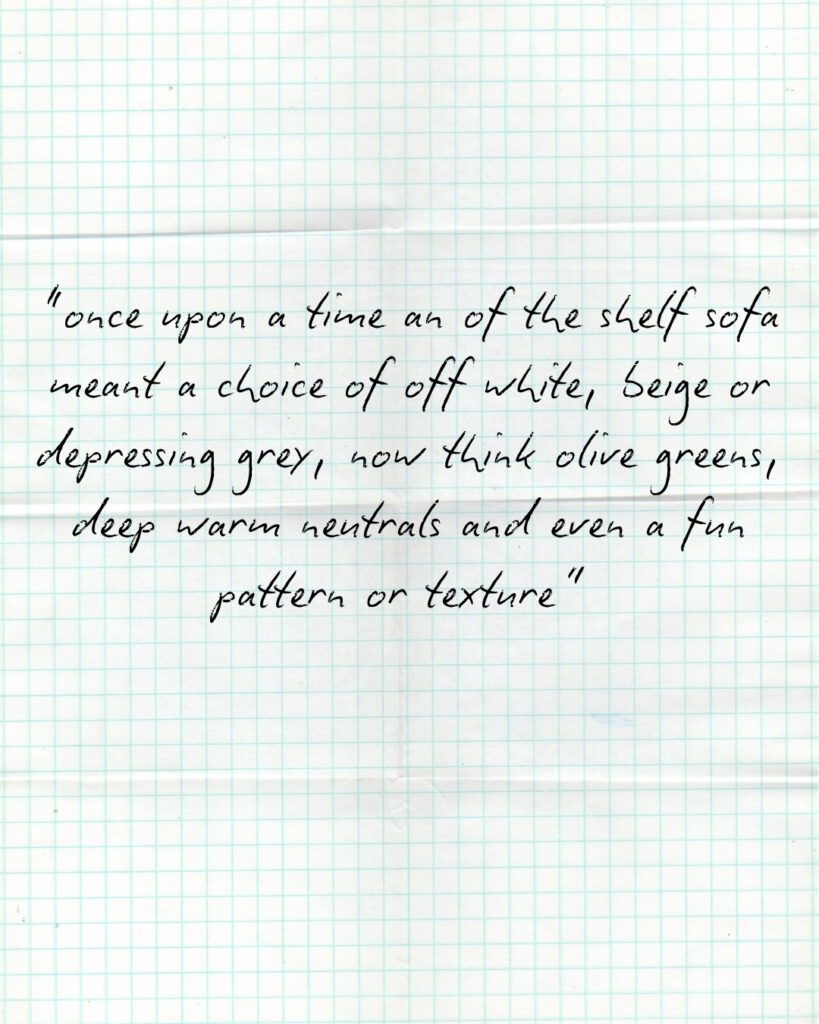 "once upon a time an of the shelf sofa
meant a choice of off white, beige or
depressing grey, now think olive greens,
deep warm neutrals and even a fun
pattern or texture"